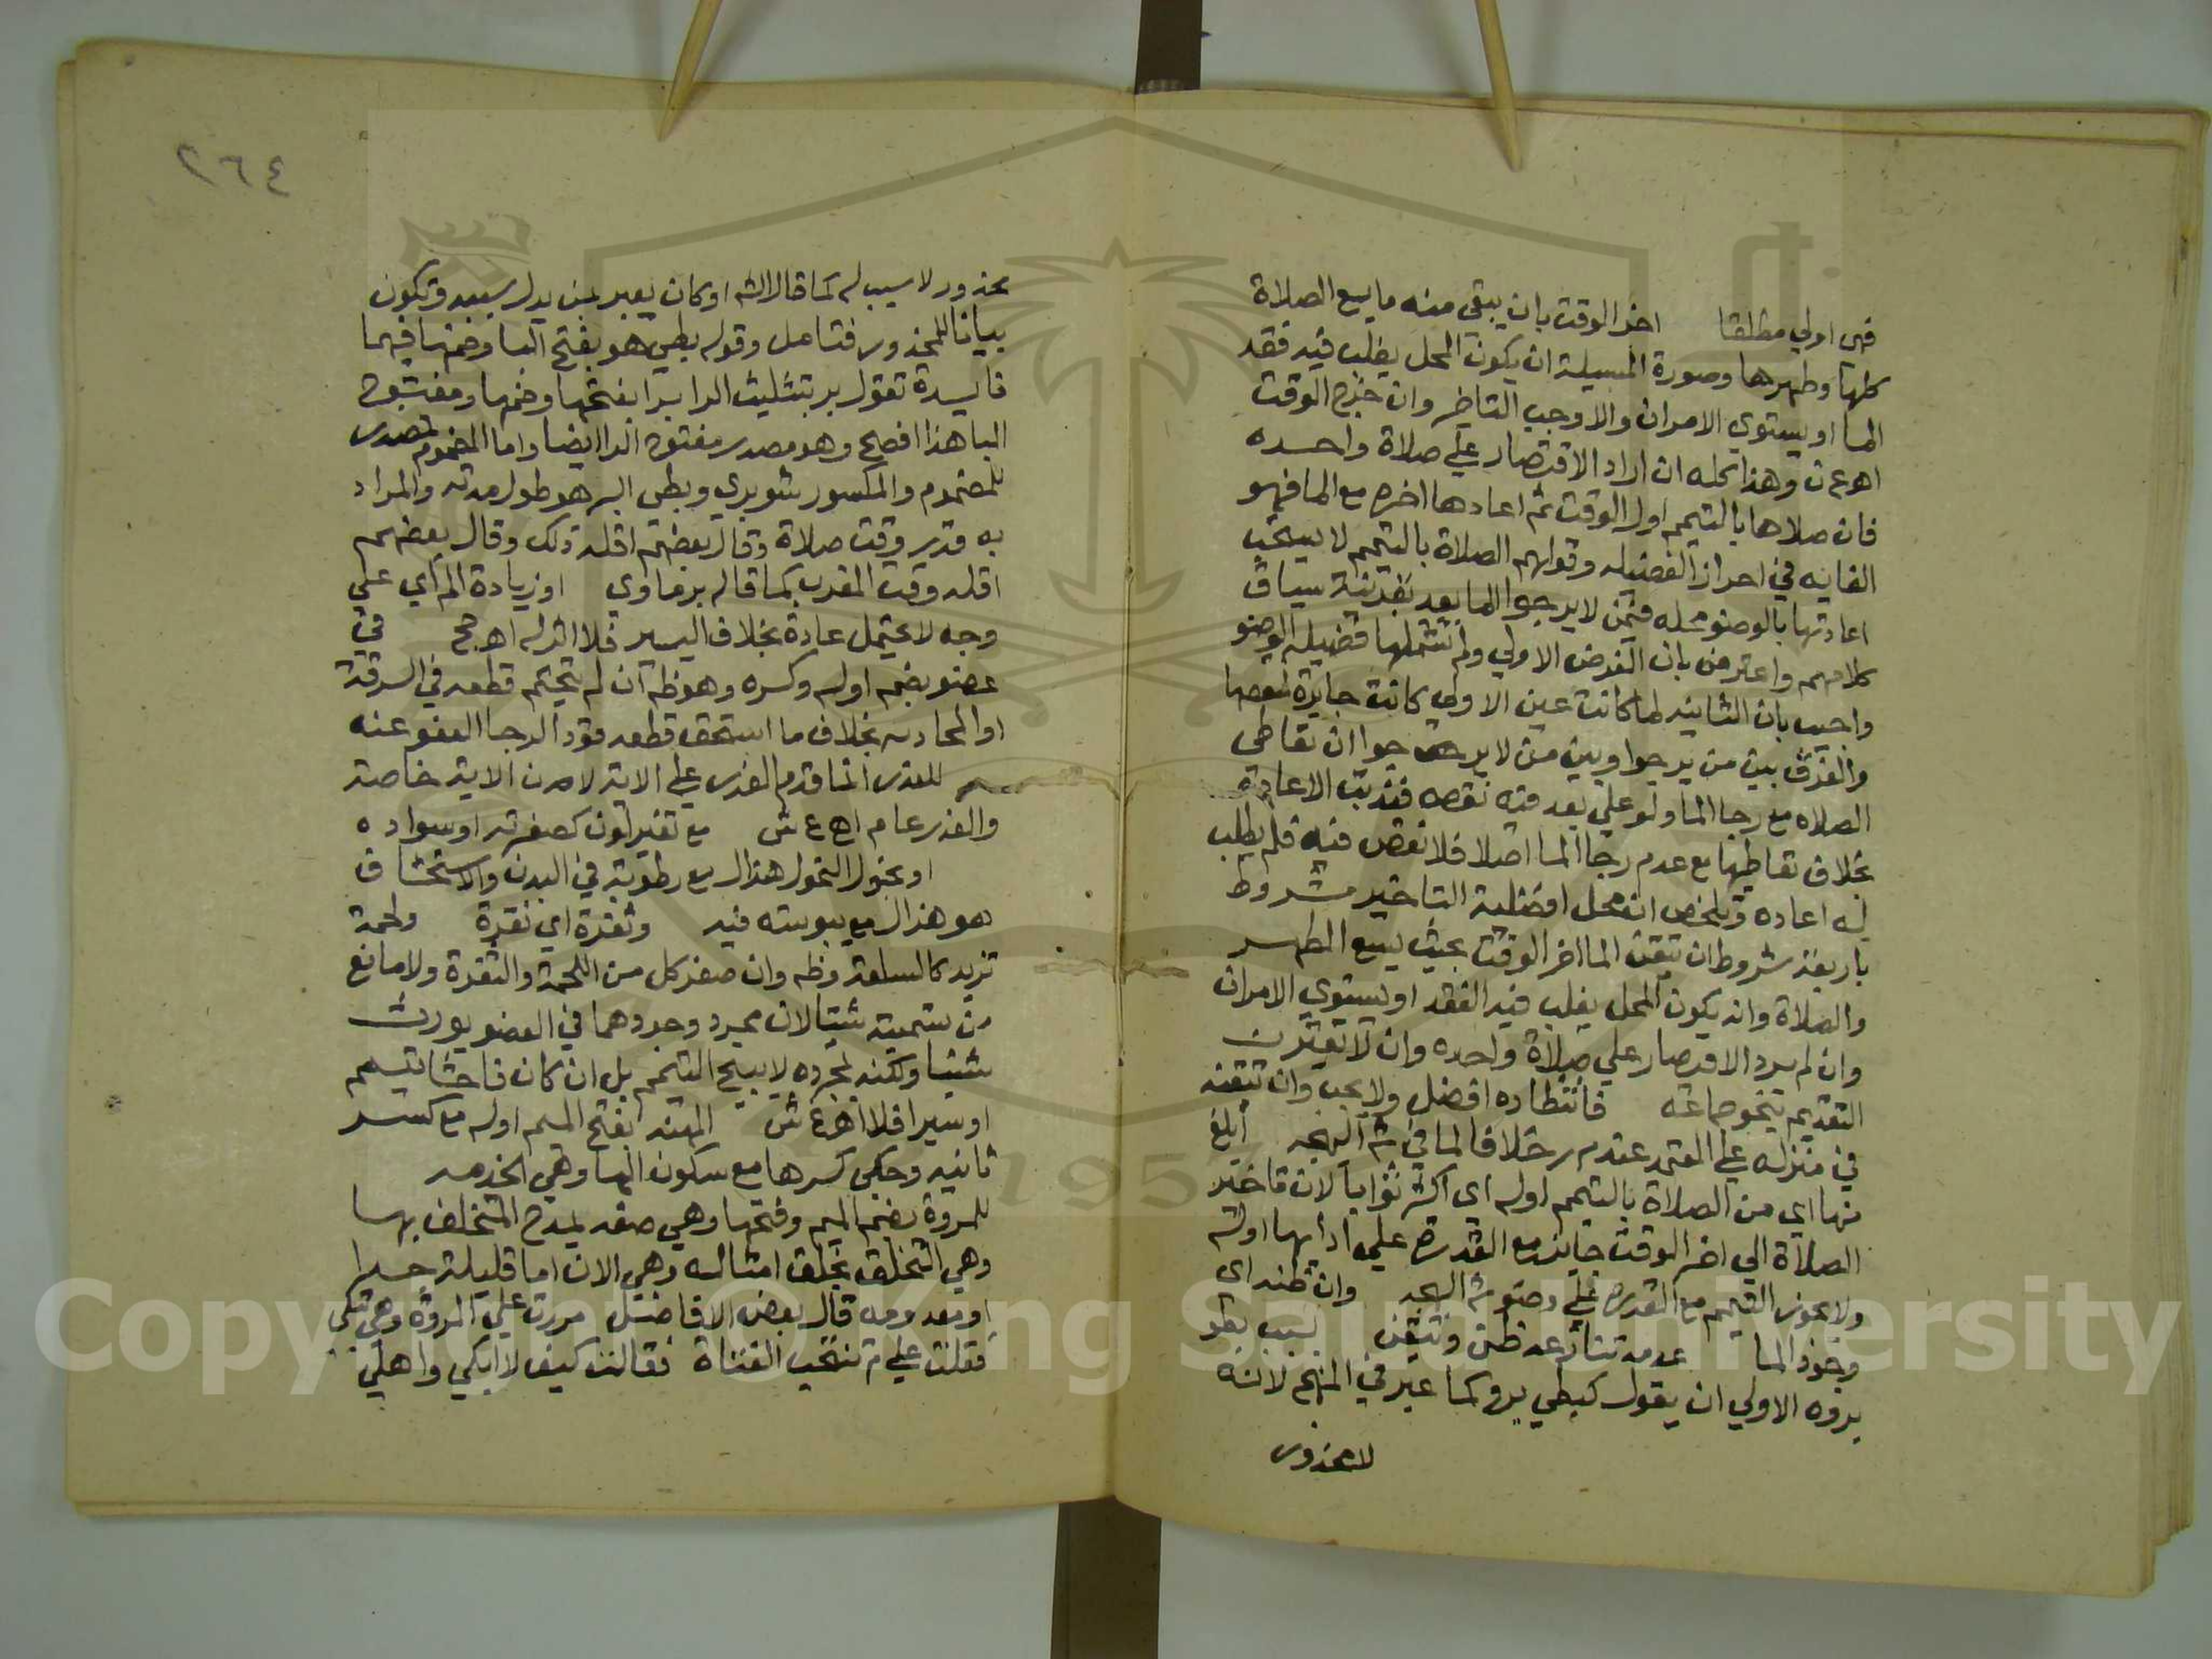 فهى اولي مطلقا اخر الوقت بان يبقى منه ما يسع الصلاة
كلها وطهرها وصورة المسيلة ان يكون المحل يغلب فيه فقد
الما او يستوي الامران والا وجب التاخر وان خرج الوقت
اه ع ن وهذا كله ان اراد الاقتصار علي صلاة واحده
فان صلاها بالتيمم اول الوقت ثم اعادها اخره مع الما فهو
الغايه في احراز الفضيله وقولهم الصلاة بالتيمم لا يستحب
اعادتها بالوضو محله فيمن لا يرجوا الما بعد بقرينة سياق
كلامهم واعترض بان الفرض الاولي ولم تشملها فضيلة الوضو
واجيب بان الثانيه لما كانت عين الاولي كانت جابرة لنقصها
والفرق بين من يرجوا وبين من لا يرجوا ان تعاطي
الصلاه مع رجا الما ولو علي بعد فيه نقص فندبت الاعادة
بخلاف تعاطيها مع عدم رجا الما اصلا فلا نقص فيه فلم يطلب
له اعاده وتلخص ان محل افضلية التاخير مشروط
باربعة شروط ان تيقن الما اخر الوقت بحيث يسع الطهر
والصلاة وان يكون المحل يغلب فيه الفقد او يستوي الامران
وان لم يرد الاقتصار علي صلاة واحده وان لا يقترن
التقديم بنحو جماعه فانتظاره افضل ولا يجب وان تيقنه
في منزله علي المعتمد عند م ر خلافا لما في ش البهجه ابلغ
منها اي من الصلاة بالتيمم اوله اى اكثر ثوابا لان تاخير
الصلاة الي اخر الوقت جايز مع القدرة علي ادايها اوله
ولا يجوز التيمم مع القدرة علي وضو ش البهجه وان ظنه اى
وجود الما عدمه تنازعه ظن وتيقن بسبب بطو
بروه الاولي ان يقول كبطي برو كما عبر في المنهج لانه
المحذور
٢٦٤
محذور لا سبب له كما قال الش او كان يعبر بمن بدل بسبب وتكون
بيانا للمحذور فتامل وقوله بطي هو بفتح البا وضمها فيهما
فايدة تقول بر بتثليث الرا برا بفتحها وضمها ومفتوح
البا هذا افصح وهو مصدر مفتوح الرا ايضا واما المضموم فمصدر
للمضموم والمكسور شوبري وبطى البر هو طول مدته والمراد
به قدر وقت صلاة وقال بعضهم اقله ذلك وقال بعضهم
اقله وقت المغرب كما قاله برماوى او زيادة الم اي علي
وجه لا يحتمل عادة بخلاف اليسير فلا اثر له اه ح في
عضو بضم اوله وكسره وهو ظ ان لم يتحتم قطعه في السرقة
او المحاربه بخلاف ما استحق قطعه قودا لرجا العفو عنه
للعذر انما قدم العذر علي الاية لان الاية خاصة
والعذر عام اه ع ش مع تغير لون كصفرته او سواده
او نحول النحول هزال مع رطوبة في البدن والاستحشاف
هو هزال مع يبوسته فيه وثغرة اي نقرة ولحمة
تزيد كالسلعة وظ وان صغر كل من اللحمة والثغرة ولا مانع
من تسميته شينا لان مجرد وجودهما في العضو يورث
شينا ولكنه بمجرده لا يبيح التيمم بل ان كان فاحشا تيمم
او يسيرا فلا اه ع ش المهنه بفتح الميم اوله مع كسر
ثانيه وحكي كسرها مع سكون الها وهي الخدمه
للمروة بضم الميم وفتحها وهي صفه يمدح المتخلق بها
وهي التخلق بخلق امثاله وهي الان اما قليلة جدا
او معدومه قال بعض الافاضل مررت علي المروة وهي تبكي
فقلت علي م تنتحب الفتاة فقالت كيف لا ابكي واهلي
Copyright © King Saud University
1957